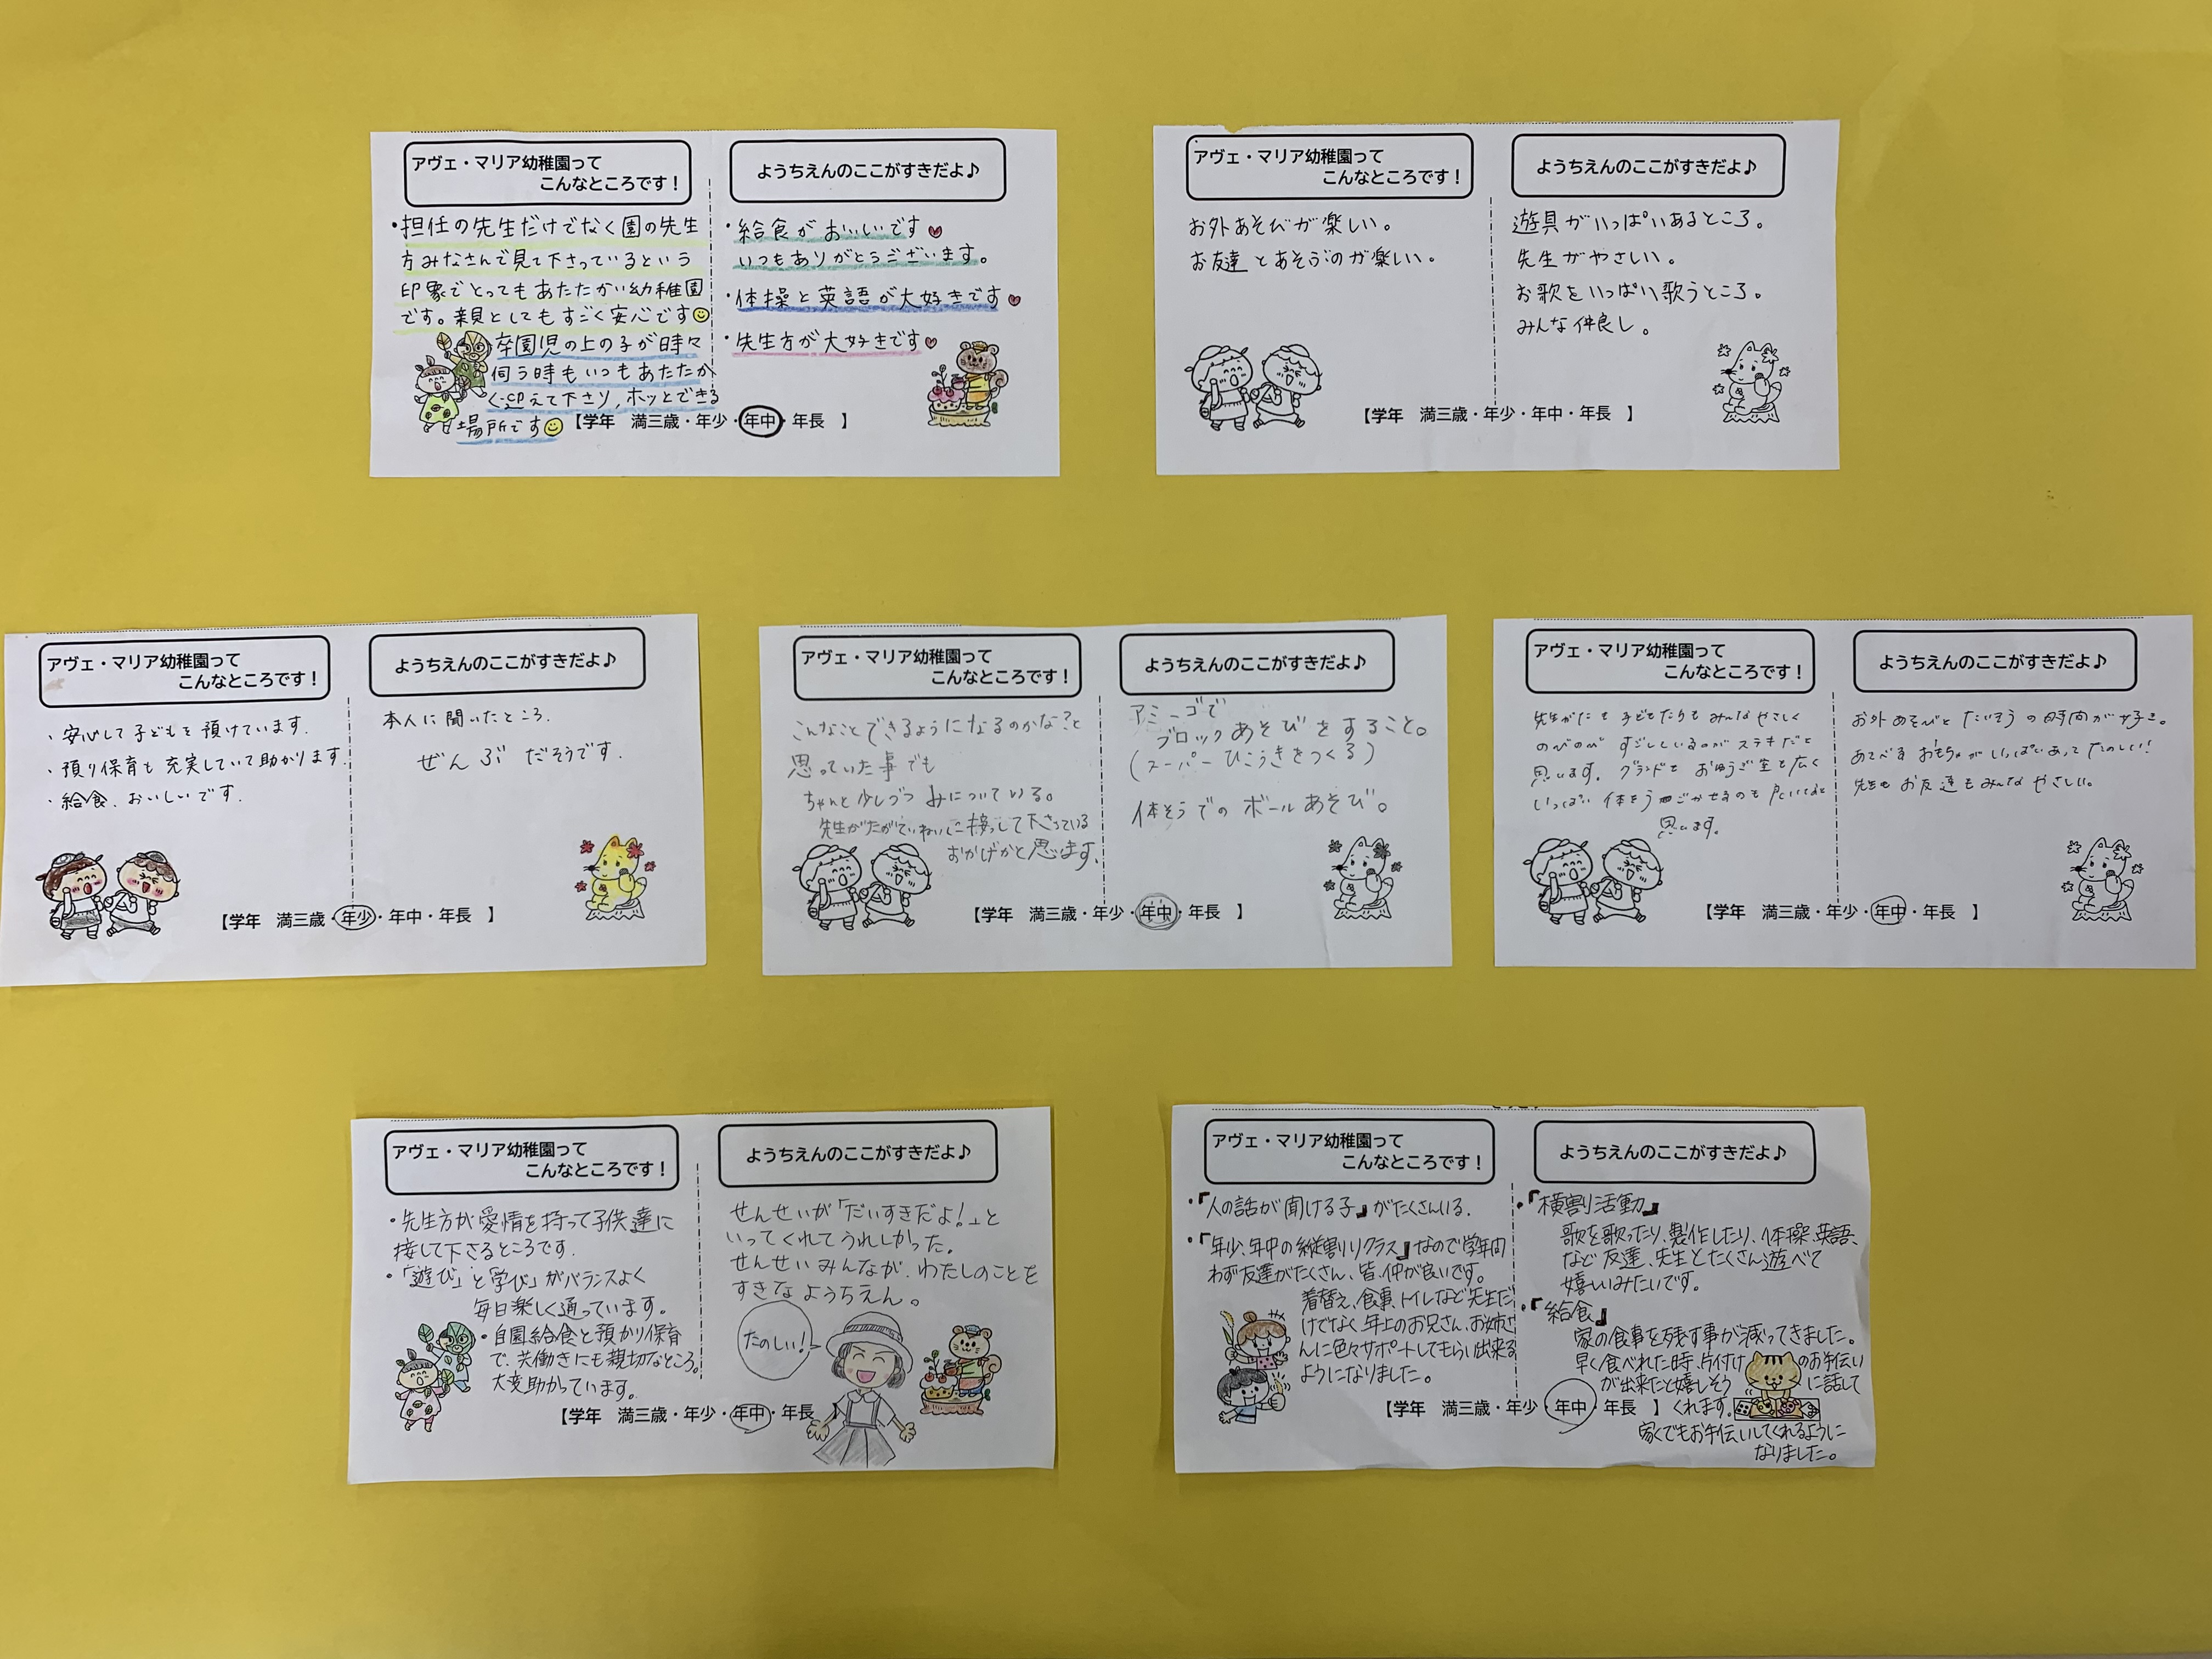 アヴェ・マリア幼稚園って
こんなところです！
・担任の先生だけでなく園の先生
方みなさんで見て下さっているという
印象でとってもあたたかい幼稚園
です。親としてもすごく安心です
卒園児の上の子が時々
伺う時もいつもあたたか
く迎えて下さり、ホッとできる
場所です
ようちえんのここがすきだよ♪
・給食がおいしいです
いつもありがとうございます。
・体操と英語が大好きです
・先生方が大好きです
【学年　満三歳・年少・年中・年長　】
アヴェ・マリア幼稚園って
こんなところです！
お外あそびが楽しい。
お友達とあそぶのが楽しい。
ようちえんのここがすきだよ♪
遊具がいっぱいあるところ。
先生がやさしい。
お歌をいっぱい歌うところ。
みんな仲良し。
【学年　満三歳・年少・年中・年長　】
アヴェ・マリア幼稚園って
こんなところです！
・安心して子どもを預けています.
・預り保育も充実していて助かります.
・給食、おいしいです.
ようちえんのここがすきだよ♪
本人に聞いたところ.
ぜんぶ だそうです.
【学年　満三歳・年少・年中・年長　】
アヴェ・マリア幼稚園って
こんなところです！
こんなことできるようになるのかな?と
思っていた事でも
ちゃんと少しづつ みについている。
先生がたがていねいに接っして下さっている
おかげかと思います、
ようちえんのここがすきだよ♪
アミーゴで
ブロックあそびをすること。
(スーパーひこうきをつくる)
体そうでのボールあそび。
【学年　満三歳・年少・年中・年長　】
アヴェ・マリア幼稚園って
こんなところです！
先生がたも子どもたちもみんなやさしく
のびのび すごしているのがステキだと
思います。グランドも おゆうぎ室も広く
いっぱい 体をうごかせるのも
思います。
ようちえんのここがすきだよ♪
お外あそびと たいそう の時間が好き。
おもちゃがいっぱいあって たのしい!
先生もお友達もみんなやさしい。
【学年　満三歳・年少・年中・年長　】
アヴェ・マリア幼稚園って
こんなところです！
・先生方が愛情を持って子供達に
接して下さるところです.
・「遊び」と「学び」がバランスよく
毎日楽しく通っています。
・自園給食と預かり保育
で、共働きにも親切なところ。
大変助かっています。
ようちえんのここがすきだよ♪
せんせいが「だいすきだよ!」と
いってくれてうれしかった。
せんせいみんなが、わたしのことを
すきなようちえん。
たのしい!
【学年　満三歳・年少・年中・年長
アヴェ・マリア幼稚園って
こんなところです！
・『人の話が聞ける子』がたくさんいる.
・『年少、年中の縦割りクラス』なので学年問
わず友達がたくさん、皆、仲が良いです。
着替え、食事、トイレなど先生だ
けでなく年上のお兄さん、お姉さ
んに色々サポートしてもらい出来る
ようになりました。
ようちえんのここがすきだよ♪
・『横割活動』
歌を歌ったり、製作したり、体操、英語、
など友達、先生とたくさん遊べて
嬉しいみたいです。
・『給食』
家の食事を残す事が減ってきました。
早く食べれた時、片付けのお手伝い
が出来たと嬉しそうに話して
くれます。
家でもお手伝いしてくれるように
なりました。
【学年　満三歳・年少・年中・年長　】